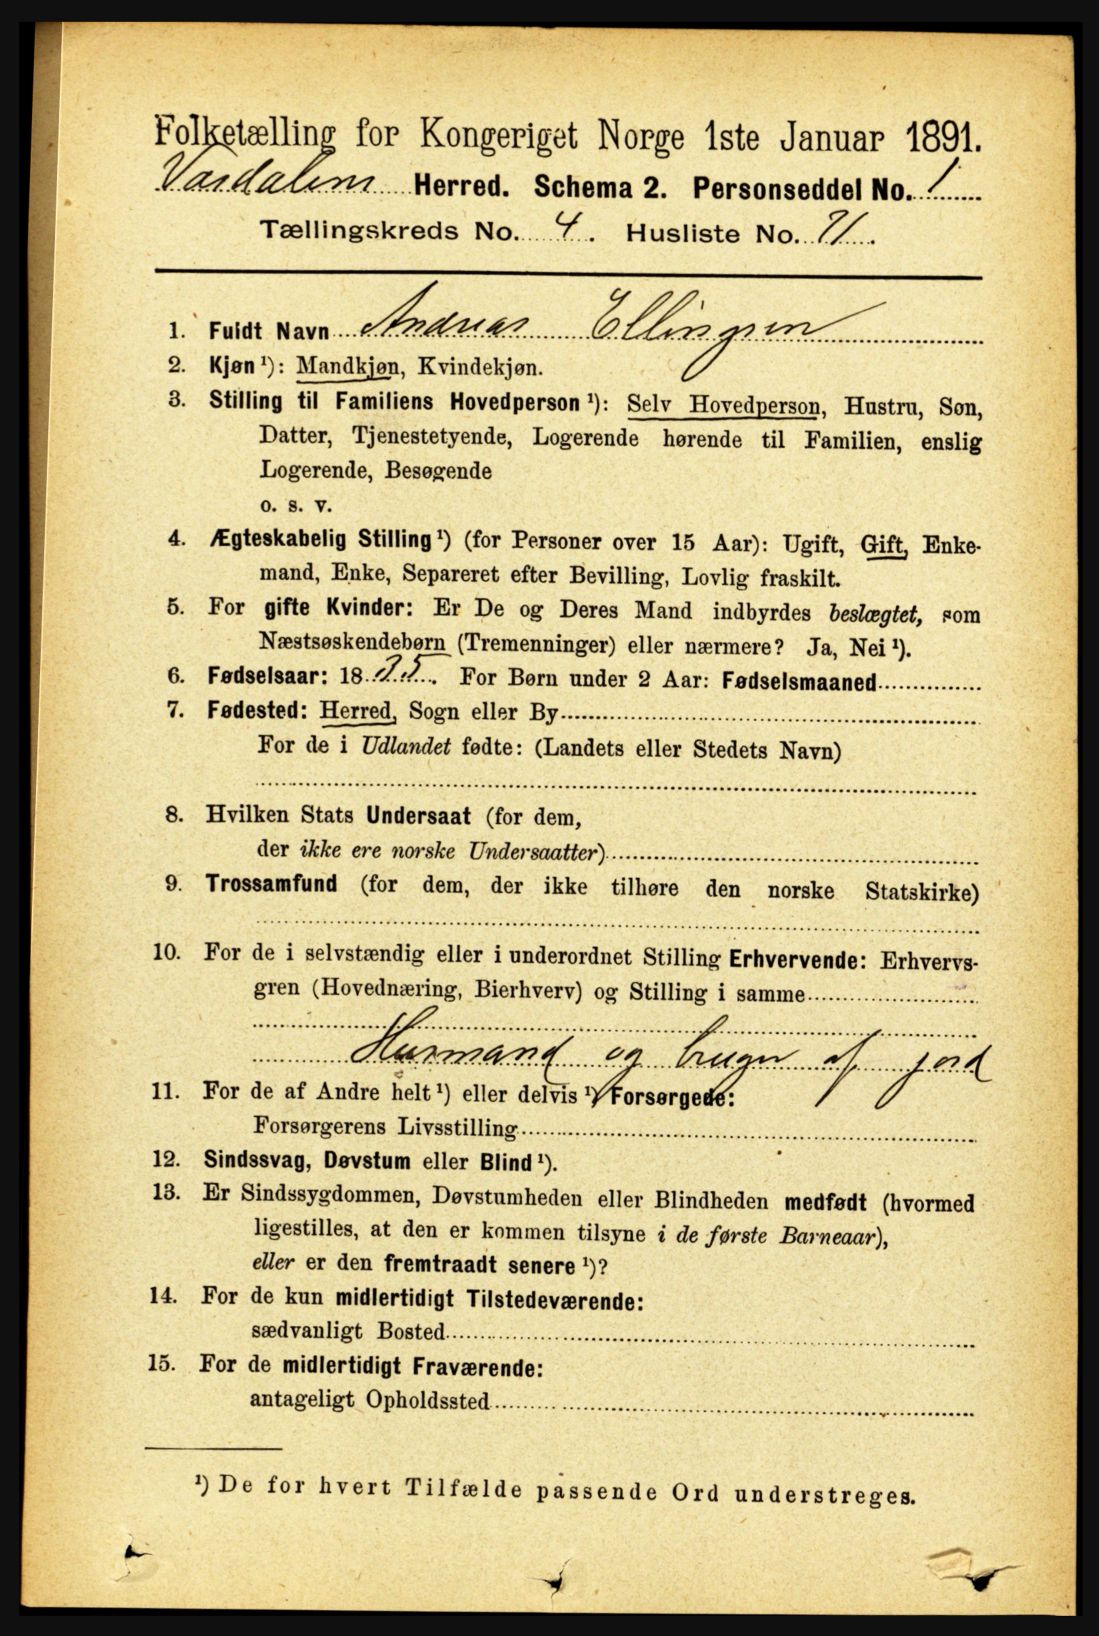 Folketælling for Kongeriget Norge 1ste Januar 1891.
Vardalens Herred. Schema 2. Personseddel No. 1
Tællingskreds No. 4. Husliste No. 71.
1. Fuldt Navn Andreas Ellingsen
2. Kjøn ¹): Mandkjøn, Kvindekjøn.
3. Stilling til Familiens Hovedperson ¹): Selv Hovedperson, Hustru, Søn,
Datter, Tjenestetyende, Logerende hørende til Familien, enslig
Logerende, Besøgende
o. s. v.
4. Ægteskabelig Stilling ¹) (for Personer over 15 Aar): Ugift, Gift, Enke-
mand, Enke, Separeret efter Bevilling, Lovlig fraskilt.
5. For gifte Kvinder: Er De og Deres Mand indbyrdes beslægtet, som
Næstsøskendebørn (Tremenninger) eller nærmere? Ja, Nei ¹).
6. Fødselsaar: 1835. For Børn under 2 Aar: Fødselsmaaned
7. Fødested: Herred, Sogn eller By
For de i Udlandet fødte: (Landets eller Stedets Navn)
8. Hvilken Stats Undersaat (for dem,
der ikke ere norske Undersaatter)
9. Trossamfund (for dem, der ikke tilhøre den norske Statskirke)
10. For de i selvstændig eller i underordnet Stilling Erhvervende: Erhvervs-
gren (Hovednæring, Bierhverv) og Stilling i samme
Husmand og bruger af jord
11. For de af Andre helt ¹) eller delvis ¹) Forsørgede:
Forsørgerens Livsstilling
12. Sindssvag, Døvstum eller Blind ¹).
13. Er Sindssygdommen, Døvstumheden eller Blindheden medfødt (hvormed
ligestilles, at den er kommen tilsyne i de første Barneaar),
eller er den fremtraadt senere ¹)?
14. For de kun midlertidigt Tilstedeværende:
sædvanligt Bosted
15. For de midlertidigt Fraværende:
antageligt Opholdssted
¹) De for hvert Tilfælde passende Ord understreges.